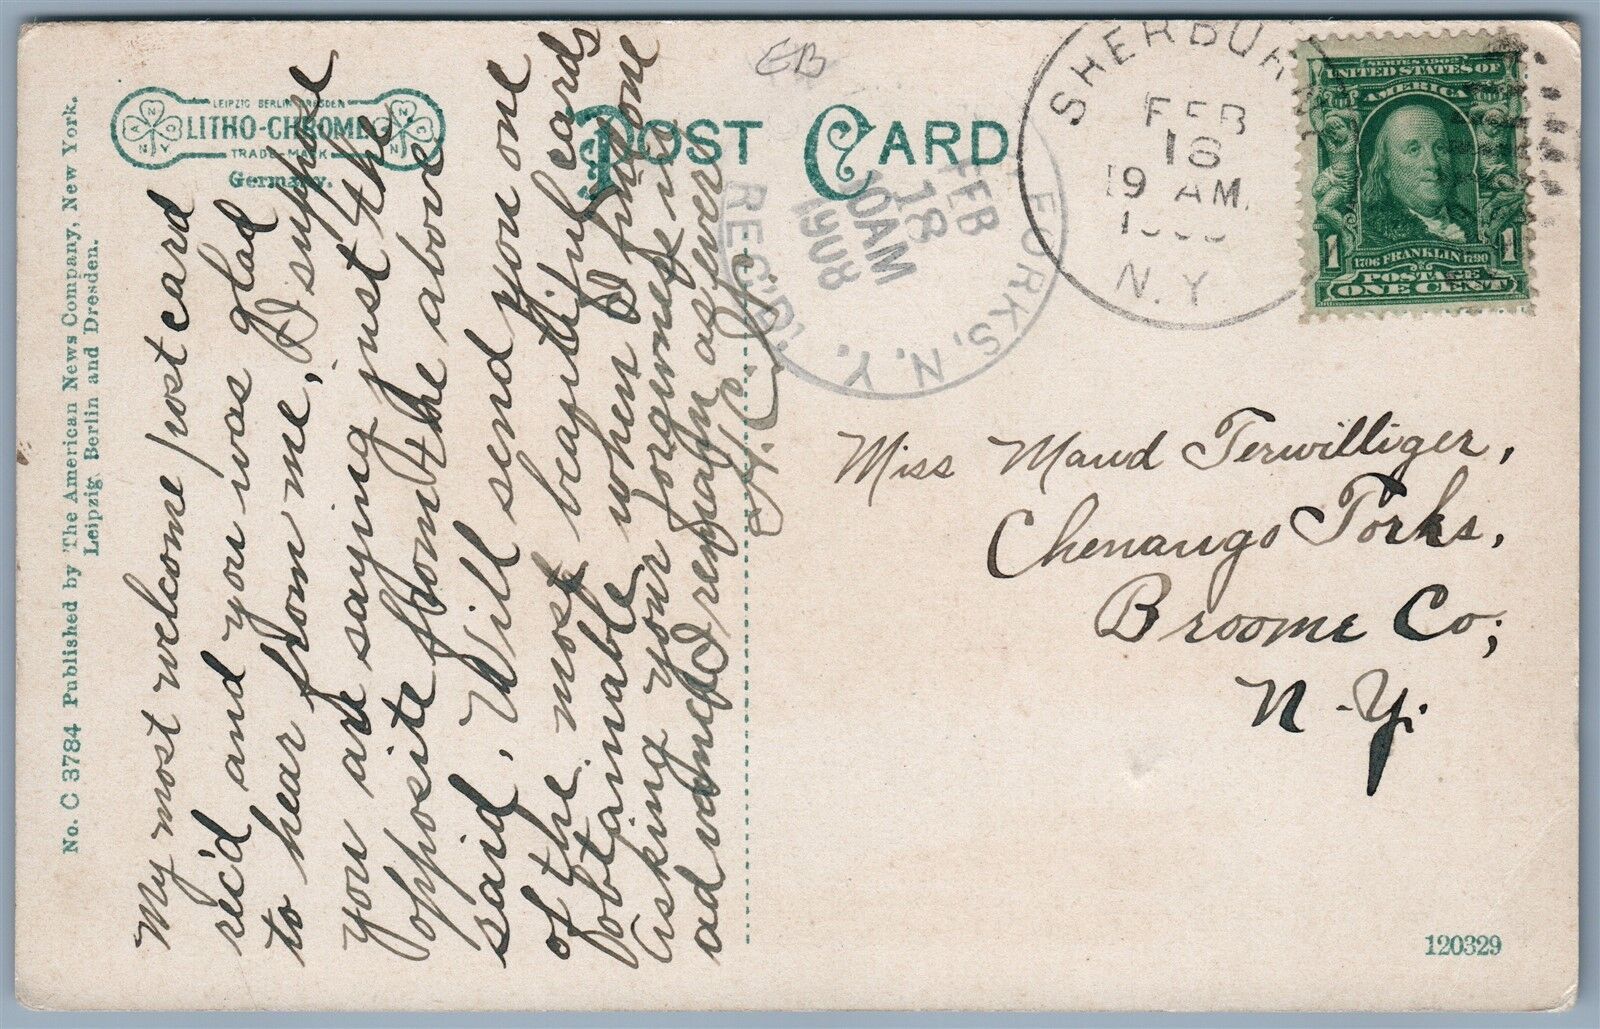 No. C 3784 Published by The American News Company, New York.
Leipzig, Berlin and Dresden.
LEIPZIG BERLIN DRESDEN
LITHO-CHROME
TRADE-MARK
Germany.
POST CARD
EB
My most welcome post card
rec'd and you was glad
to hear from me, I suppose
you are saying just the
opposite from the above
said. Will send you one
of the most beautiful cards
obtainable when I find one
Asking your forgiveness in
advance I remain as ever
FORKS, N.Y.
FEB
18
10AM
1908
REC'D.
SHERBUR
FEB
18
9 AM.
N.Y.
SERIES 1902
UNITED STATES OF
AMERICA
1 1706 FRANKLIN 1790 1
POSTAGE
ONE CENT
Miss Maud Terwilliger,
Chenango Forks,
Broome Co;
N.Y.
120329